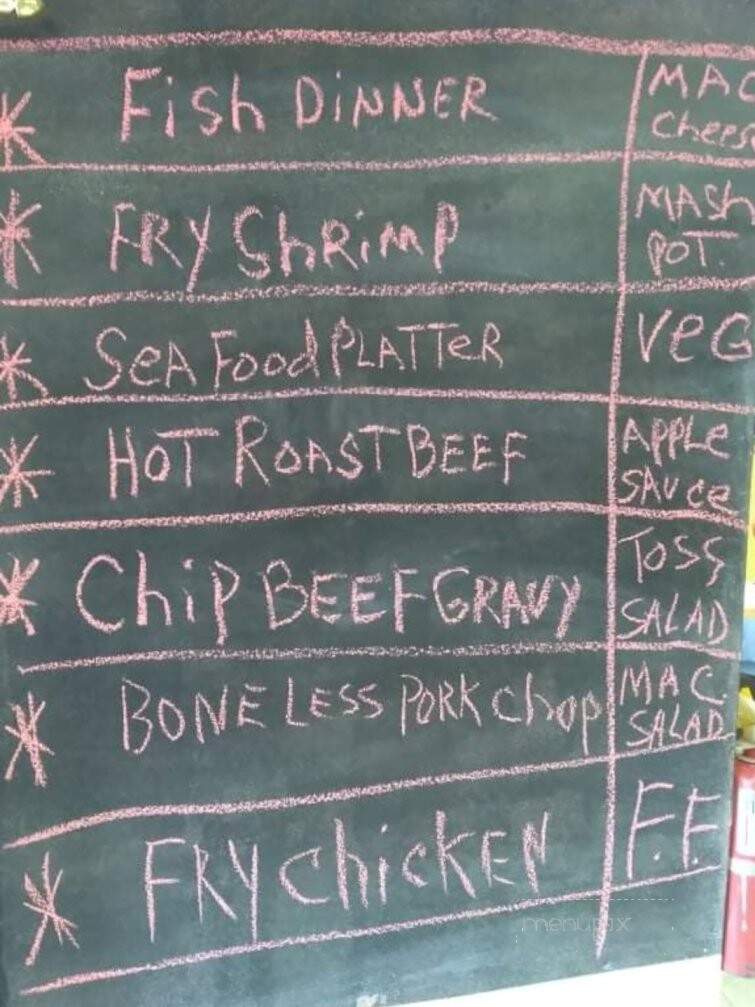 Fish DiNNER
MAC
Cheese
FRY ShRiMP
MASh
POT.
SeA Food PLATTeR
VeG
HOT ROAST BEEF
APPLe
SAUce
Chip BEEF GRAVY
TOSS
SALAD
BONELESS PORK Chop
MAC.
SALAD
FRY ChicKEN
F.F
menupix